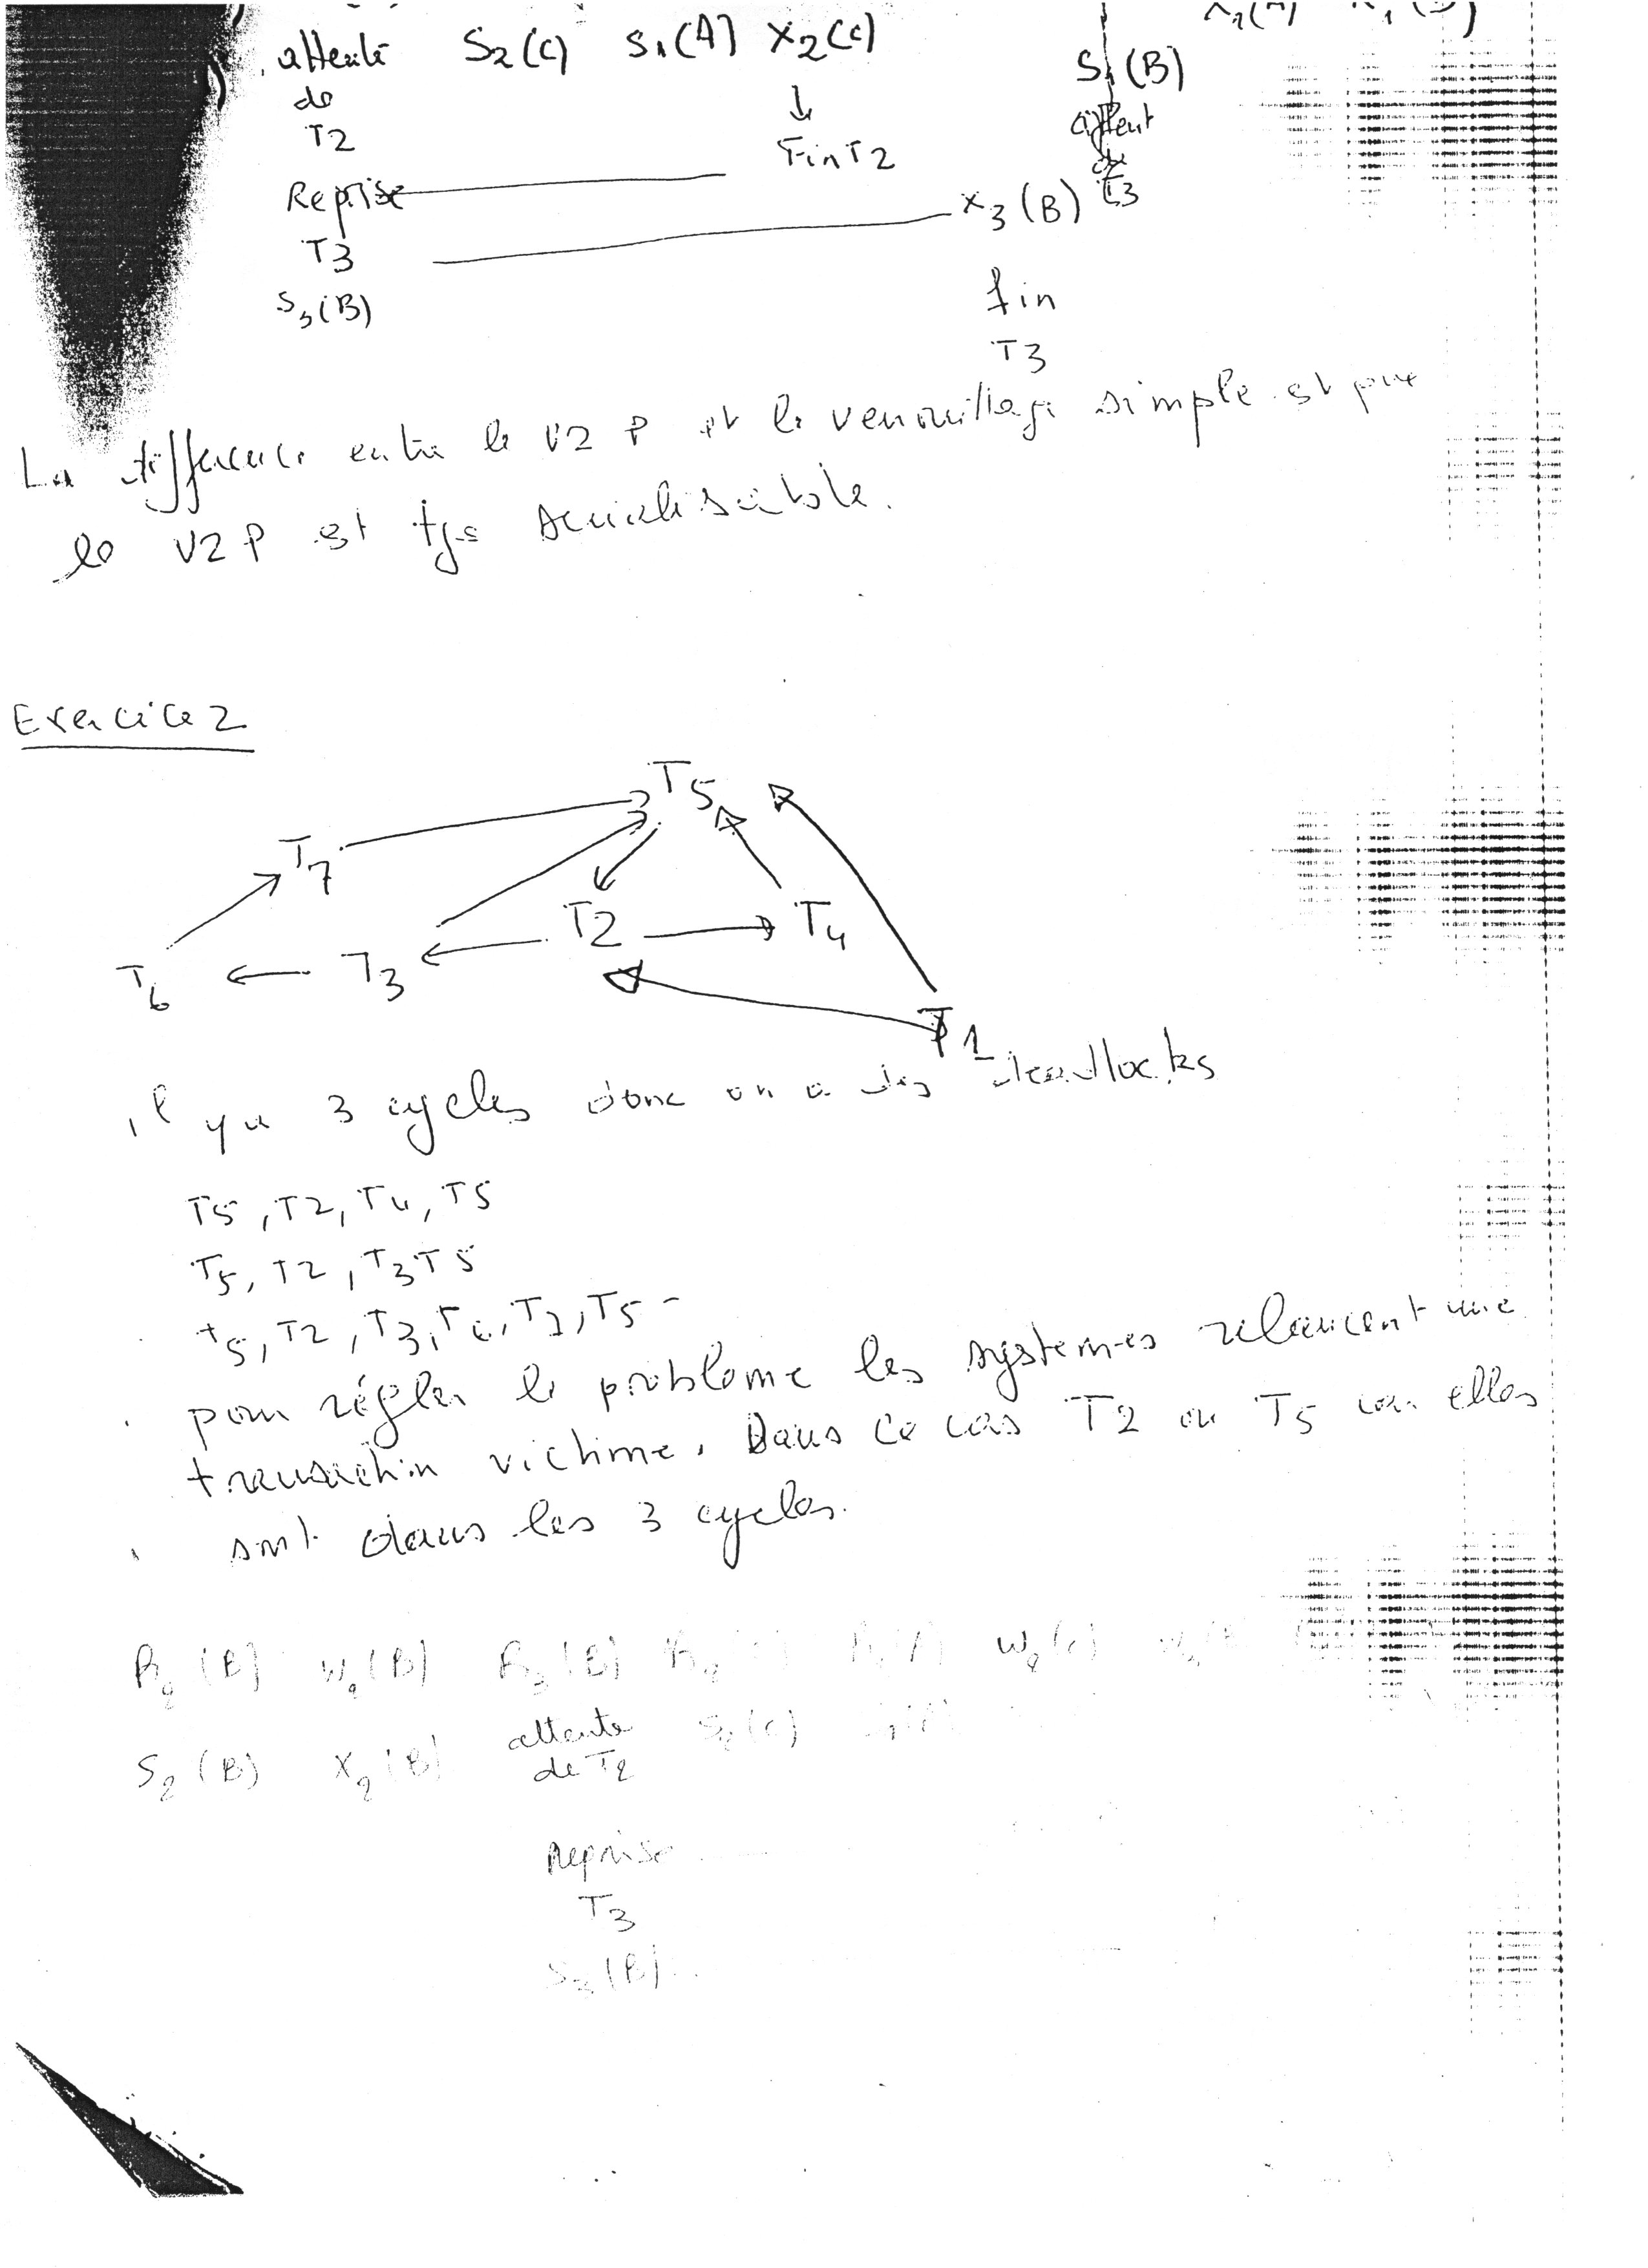 attente S2(C) S1(A) X2(C) S1(B)
de
T2 Fin T2 T3
Reprise X3(B)
T3
S3(B) fin
T3
La différence entre le V2P et le verrouillage simple est que
le V2P est tjs serialisable.
Exercice 2
T5
T7
T2 T4
T6 T3
T1
il ya 3 cycles donc on a des deadlocks
T5, T2, T4, T5
T5, T2, T3 T5
T5, T2, T3, T6, T7, T5
pour régler le problème les systemes relancent une
transaction victime. Dans ce cas T2 ou T5 car elles
sont dans les 3 cycles.
R2(B) W2(B) R3(B)
S2(B) X2(B) attente
de T2
Reprise
T3
S3(B)